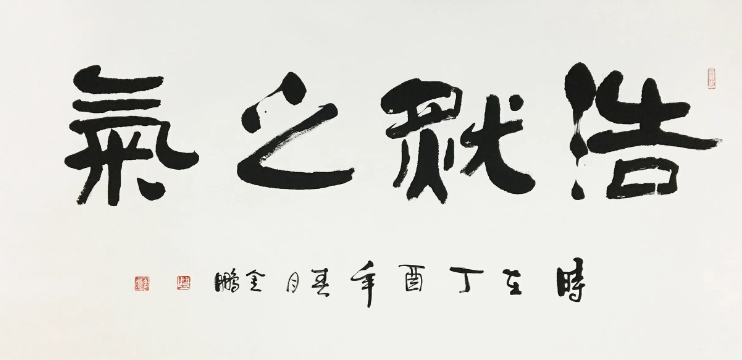 浩然之氣
時在丁酉年春月金鵬